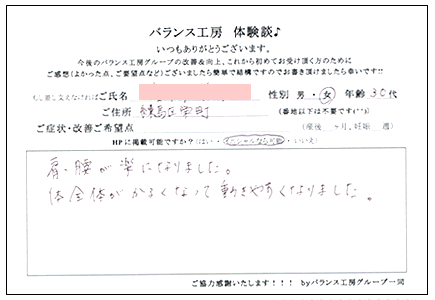 バランス工房 体験談♪
いつもありがとうございます。
今後のバランス工房グループの改善&向上、これから初めてお受け頂く方のために
ご感想(よかった点、ご要望点など)ございましたら簡単で結構ですのでお書き頂けましたら幸いです!!
もし差し支えなければご氏名 性別 男・女 年齢 30代
ご住所 練馬区栄町 (番地以下は不要です(^^))
ご症状・改善ご希望点 (産後 ヶ月、妊娠 週)
HPに掲載可能ですか?(はい・イニシャルなら可能・いいえ)
肩・腰が楽になりました。
体全体がかるくなって動きやすくなりました。
ご協力感謝いたします!!! byバランス工房グループ一同